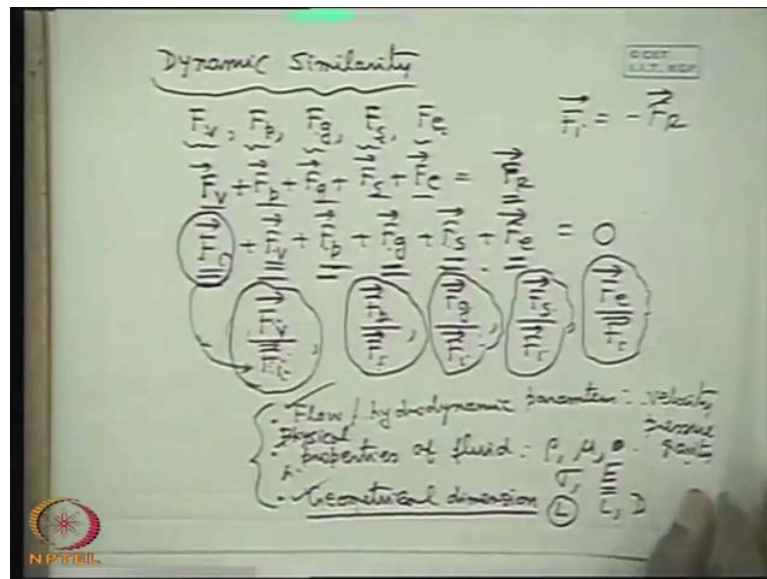 Dynamic Similarity
© CET
I.I.T. KGP
F_v, F_p, F_g, F_s, F_e.
F_i = -F_R
F_v + F_p + F_g + F_s + F_e = F_R
F_i + F_v + F_p + F_g + F_s + F_e = 0
F_v/F_i, F_p/F_i, F_g/F_i, F_s/F_i, F_e/F_i
Flow / hydrodynamic parameters: velocity
pressure
Physical
properties of fluid: ρ, μ,
σ, E
Geometrical dimension L L, D
NPTEL